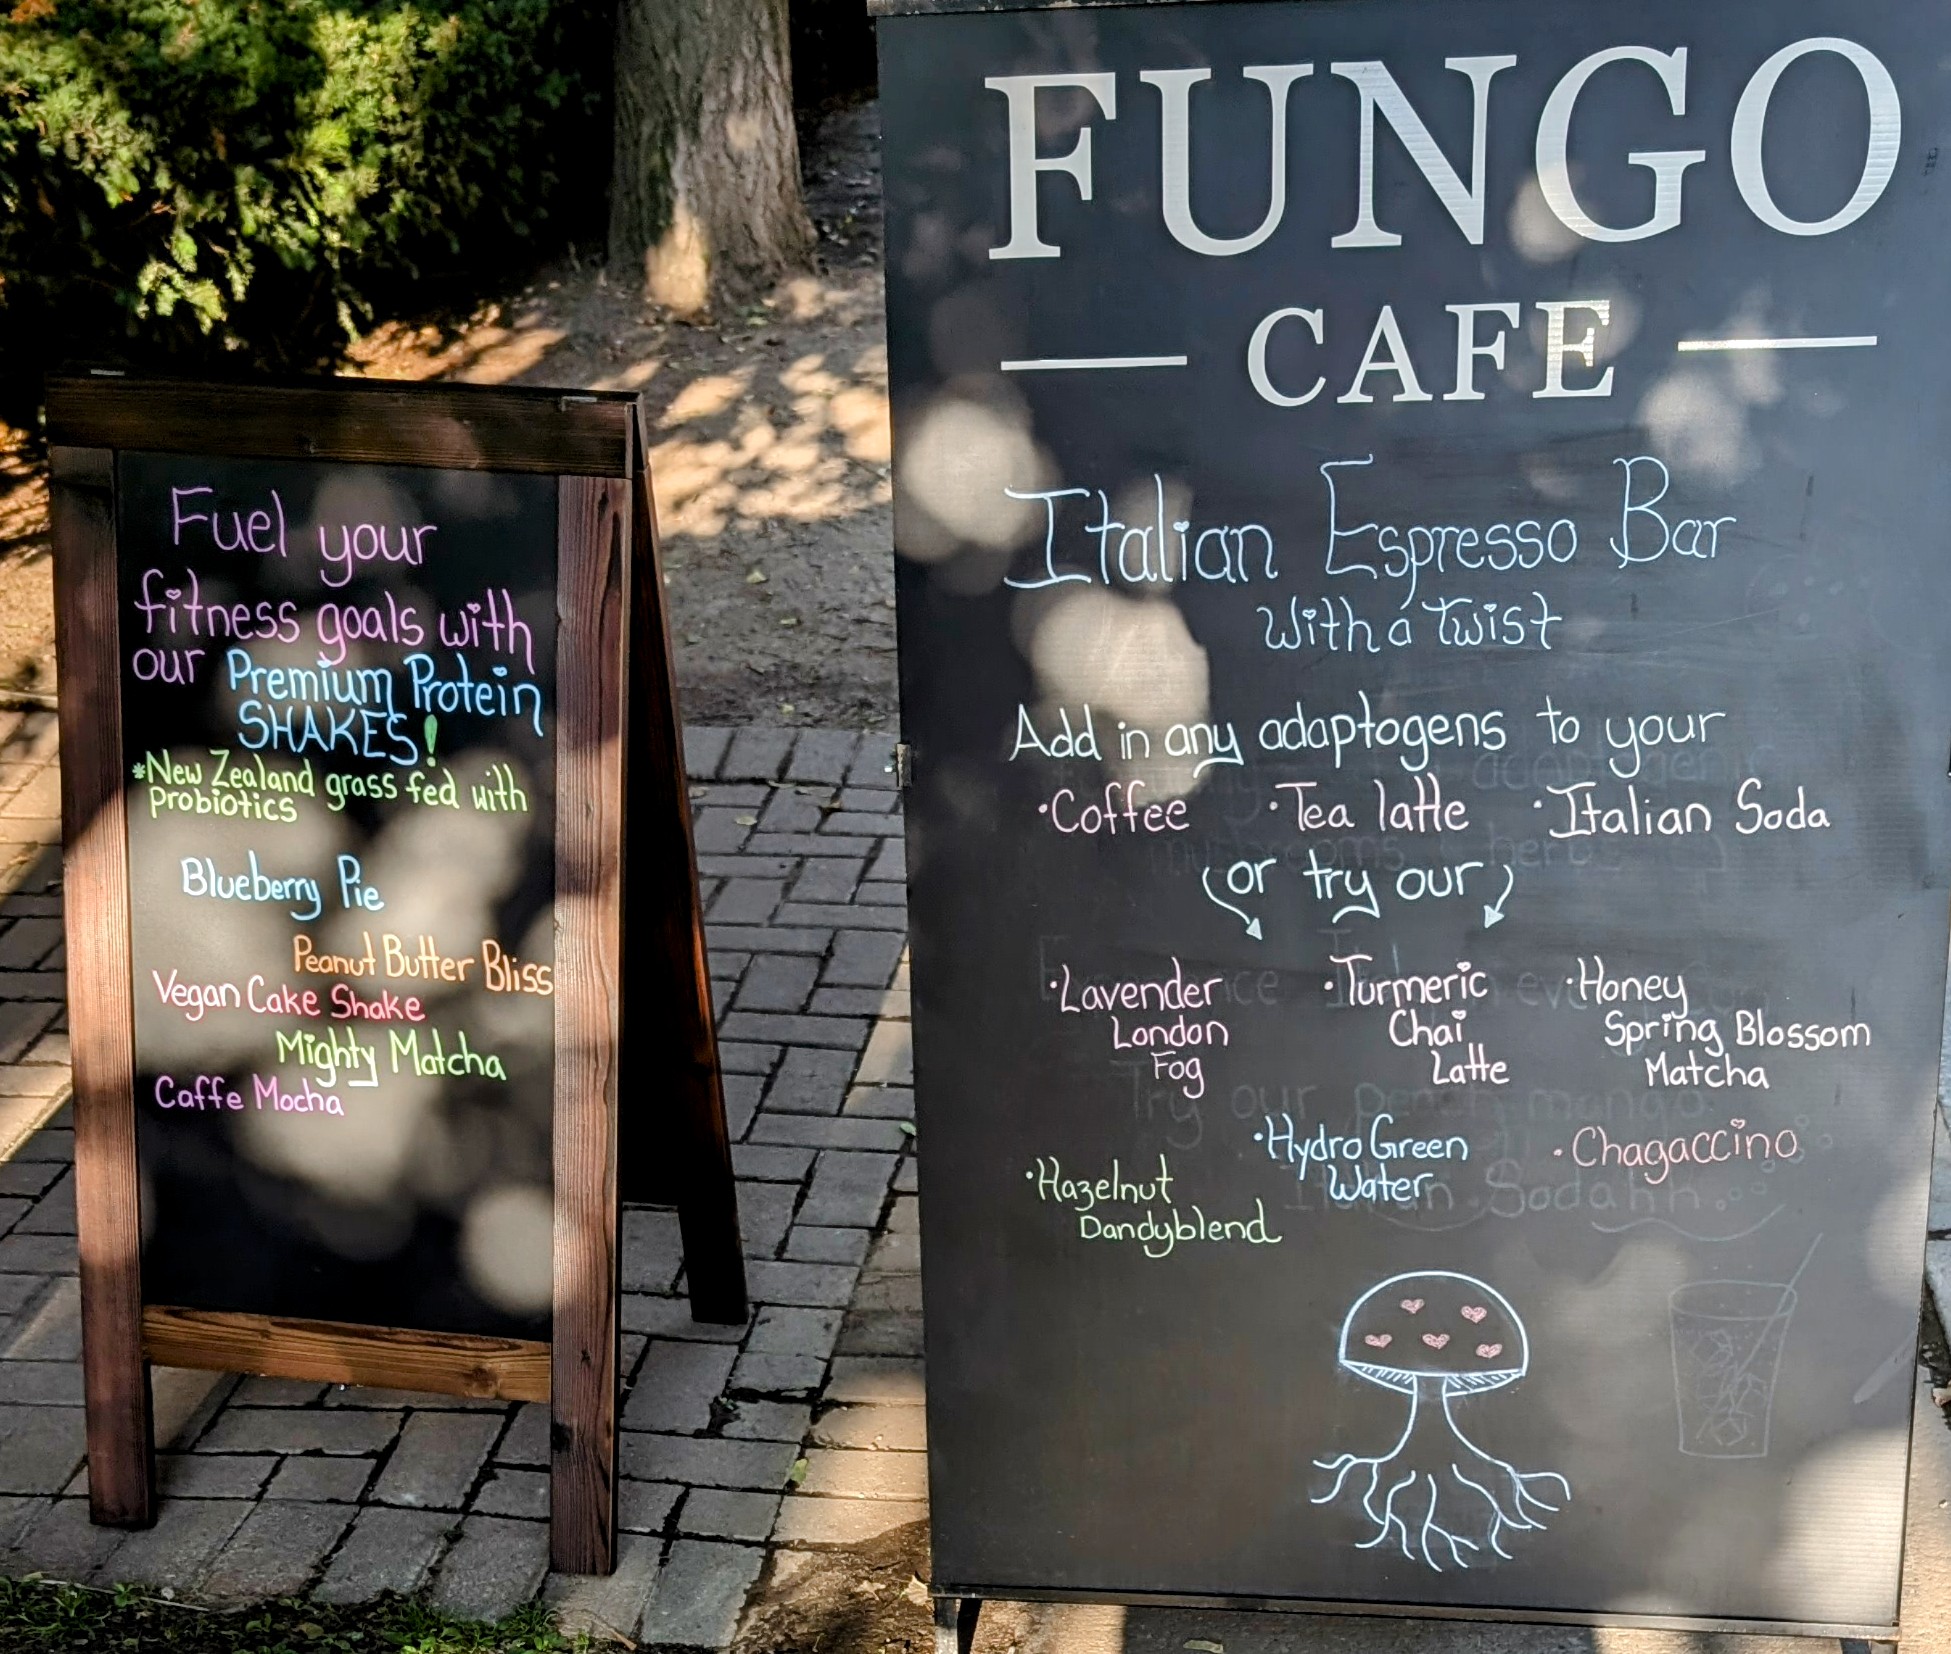 Fuel your
fitness goals with
our Premium Protein
SHAKES!
*New Zealand grass fed with
probiotics
Blueberry Pie
Peanut Butter Bliss
Vegan Cake Shake
Mighty Matcha
Caffe Mocha
FUNGO
CAFE
Italian Espresso Bar
With a Twist
Add in any adaptogens to your
·Coffee ·Tea latte ·Italian Soda
or try our
·Lavender
London
Fog
·Turmeric
Chai
Latte
·Honey
Spring Blossom
Matcha
·Hazelnut
Dandyblend
·Hydro Green
Water
·Chagaccino